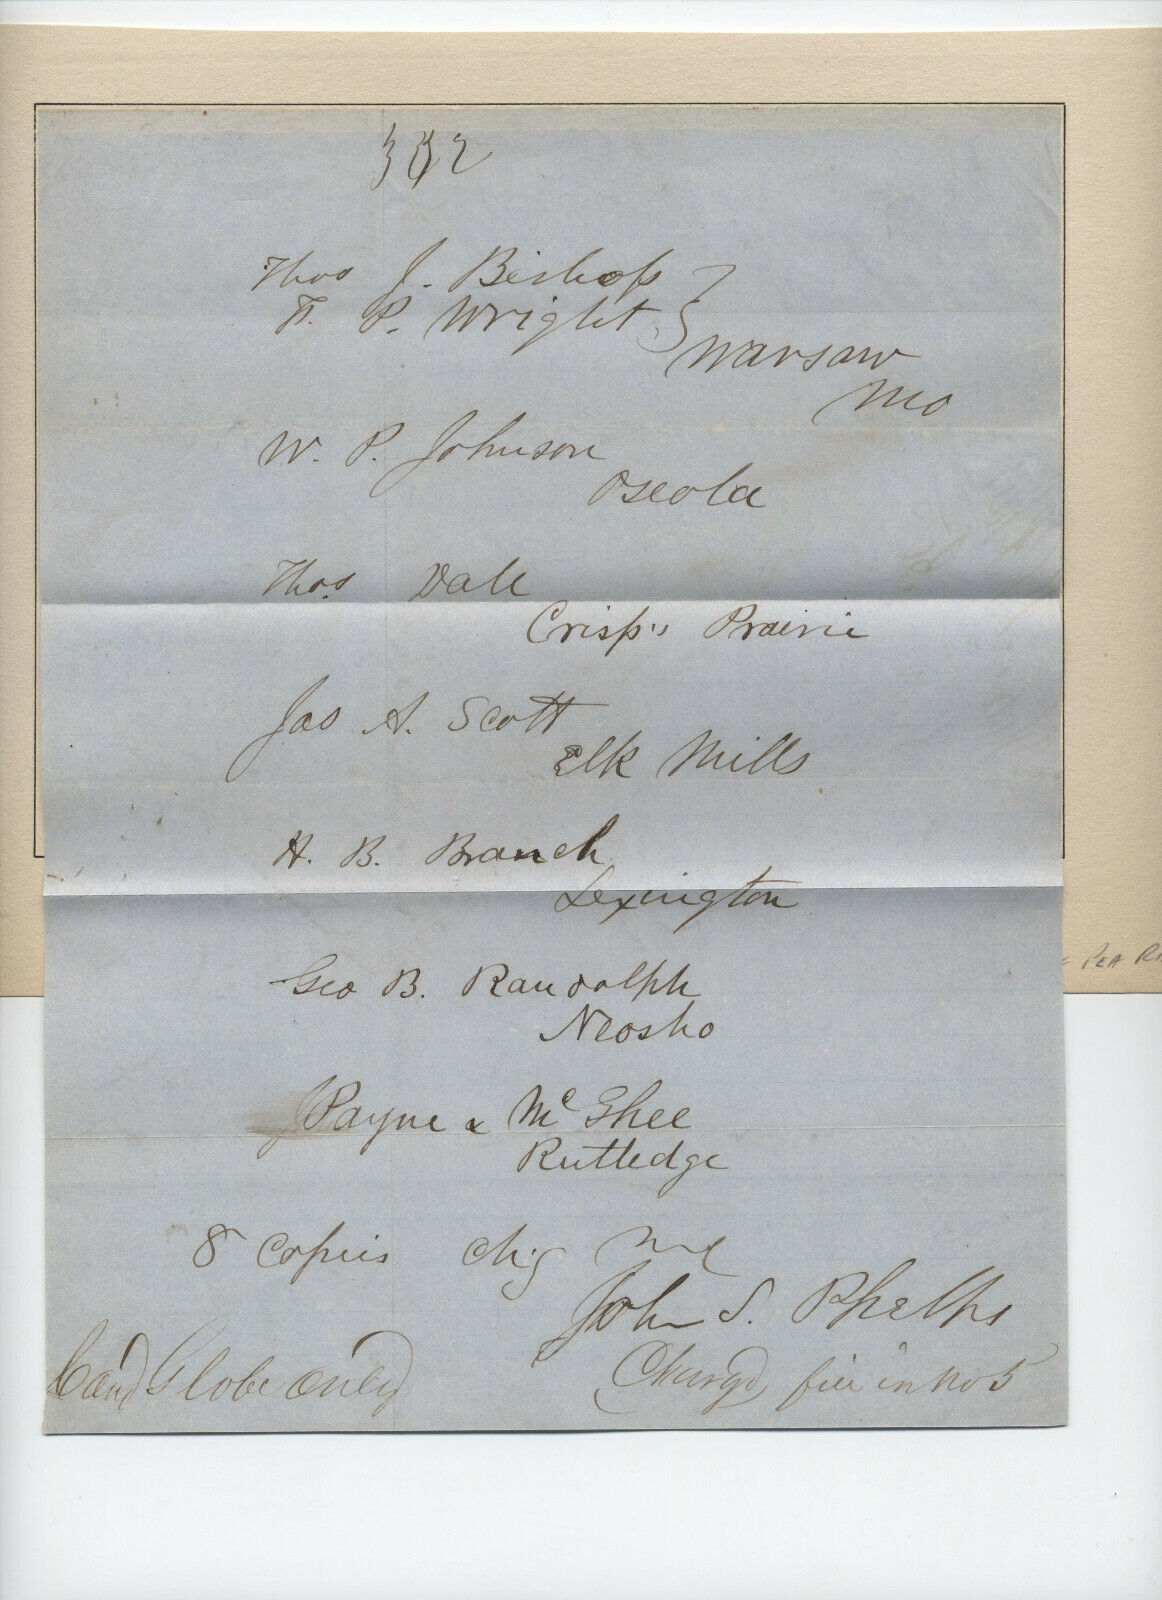 Thos J. Bishop
P. Wright
Warsaw
Mo
W. P. Johnson
Oseola
Thos Dale
Crisp's Prairie
Jas A. Scott
Elk Mills
H. B. Branch
Lexington
Geo B. Randolph
Neosho
Payne & McGhee
Rutledge
8 Copies chg me
John S. Phelps
Globe only
Chargd, in No 5
PEA